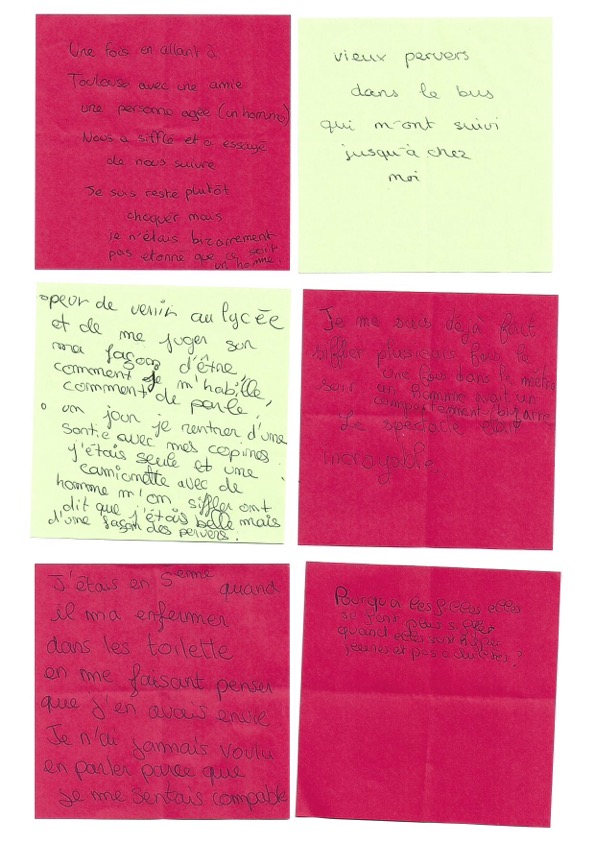 Une fois en allant à
Toulouse avec une amie
une personne agée (un homme)
Nous a sifflé et a essayé
de nous suivre
Je suis resté plutôt
choquer mais
je n'étais bizarrement
pas etonne que ce soit
un homme.
vieux pervers
dans le bus
qui m'ont suivi
jusqu'à chez
moi
peur de venir au lycée
et de me juger sur
ma façon d'être,
comment je m'habille,
comment de parle,
un jour je rentrer d'une
sortie avec mes copines
j'étais seule et une
camionette avec de
homme m'on siffler ont
dit que j'étais belle mais
d'une façon des pervers.
Je me suis déjà fait
siffler plusieurs fois le
soir une fois dans le métro
un homme avait un
comportement bizarre
Le spectacle etait
incroyable
J'étais en 5eme quand
il m'a enfermer
dans les toilette
en me faisant penser
que j'en avais envie
Je n'ai jammais voulu
en parler parce que
je me sentais coupable
Pourquoi les filles elles
se font plus siffler
quand elles sont hyper
jeunes et pas adultes?